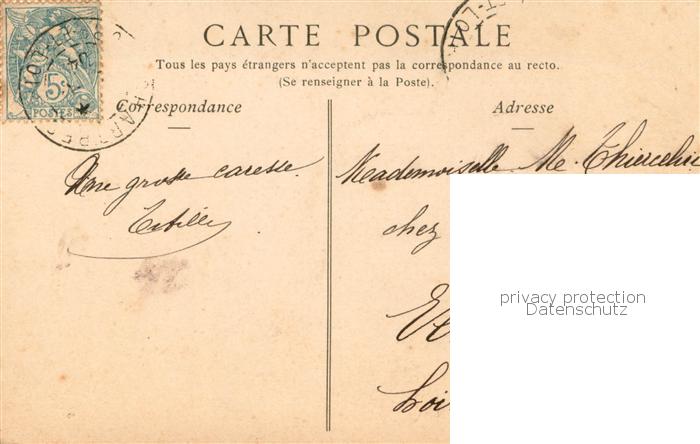 CARTE POSTALE
Tous les pays étrangers n'acceptent pas la correspondance au recto.
(Se renseigner à la Poste).
Correspondance
Adresse
5c
POSTES
Une grosse caresse
Mademoiselle M.
chez
privacy protection
Datenschutz